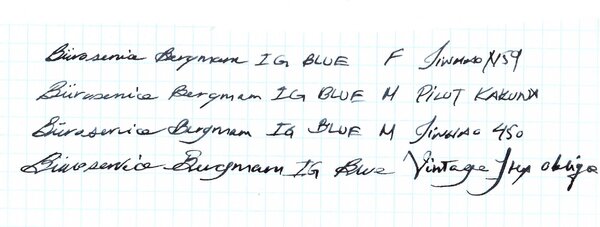 Büroservice Bergmann IG BLUE F Jinhao X159
Büroservice Bergmann IG BLUE M PILOT KAKUNO
Büroservice Bergmann IG BLUE M Jinhao 450
Büroservice Bergmann IG Blue Vintage